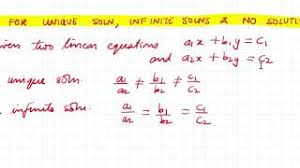 FOR UNIQUE SOLN, INFINITE SOLNS & NO SOLUTI
iven two linear equations a₁x + b₁y = c₁
and a₂x + b₂y = c₂
unique soln. a₁/a₂ ≠ b₁/b₂ ≠ c₁/c₂
infinite soln. a₁/a₂ = b₁/b₂ = c₁/c₂